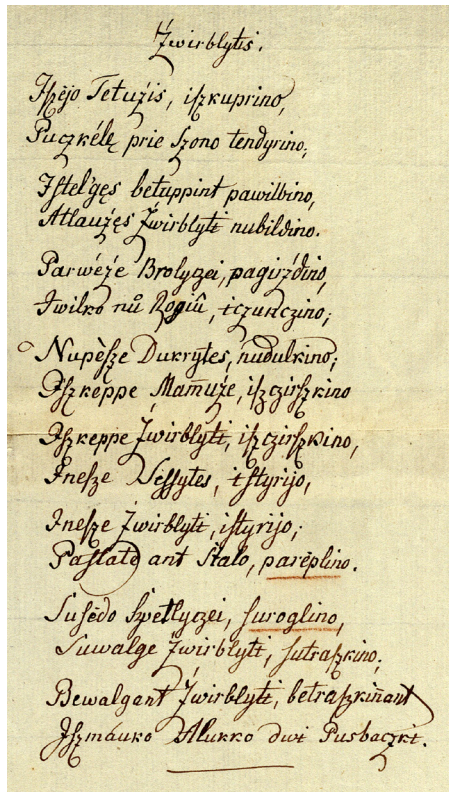 Źwirblytis.
Iſzėjo Tetużis, iſzkuprino,
Puczkėlę prie Szono tendyrino;
Iſtelgęs betuppint pawilbino,
Atlauźęs Źwirblyti nubildino.
Parwėźe Brolyczei, pagirźdino,
Iwilko nů Rogiû, iczunczino;
Nupėſze Dukrytes, nudulkino;
Iſzkeppe Mamuźe, iſzczirſzkino
Iſzkeppe Źwirblyti, iſzczirſzkino,
Ineſze Seſſytes, iſtyrijo,
Ineſze Źwirblyti, iſtyrijo;
Paſtatė ant Stalo, parėplino.
Suſėdo Szwetlyczei, ſuroglino,
Suwalge Źwirblyti, ſutraſzkino;
Bewalgant Źwirblyti, betraſzkinant
Iſzmáuko Alukko dwi Pusbaczki.